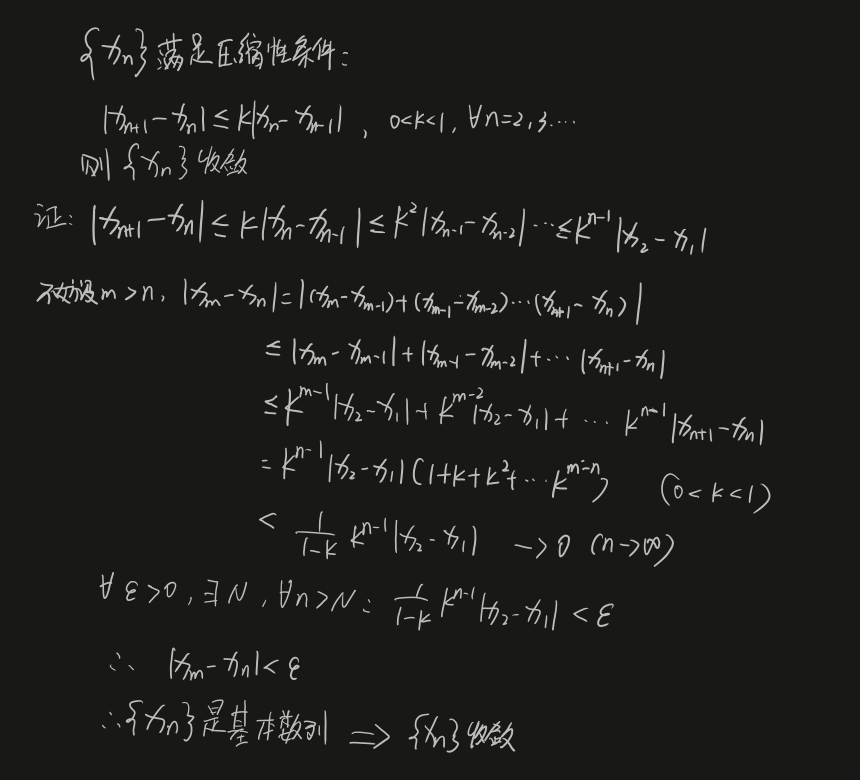 {xₙ}满足压缩性条件:
|xₙ₊₁-xₙ|≤k|xₙ-xₙ₋₁| , 0<k<1, ∀n=2,3…
则{xₙ}收敛
证: |xₙ₊₁-xₙ|≤k|xₙ-xₙ₋₁|≤k²|xₙ₋₁-xₙ₋₂|…≤kⁿ⁻¹|x₂-x₁|
不妨设m>n, |xₘ-xₙ|=|(xₘ-xₘ₋₁)+(xₘ₋₁-xₘ₋₂)…(xₙ₊₁-xₙ)|
≤|xₘ-xₘ₋₁|+|xₘ₋₁-xₘ₋₂|+…|xₙ₊₁-xₙ|
≤kᵐ⁻¹|x₂-x₁|+kᵐ⁻²|x₂-x₁|+… kⁿ⁻¹|xₙ₊₁-xₙ|
=kⁿ⁻¹|x₂-x₁|(1+k+k²+…kᵐ⁻ⁿ) (0<k<1)
< 1/(1-k) kⁿ⁻¹|x₂-x₁| →0 (n→∞)
∀ε>0, ∃N, ∀n>N: 1/(1-k) kⁿ⁻¹|x₂-x₁|<ε
∴ |xₘ-xₙ|<ε
∴{xₙ}是基本数列 ⇒ {xₙ}收敛